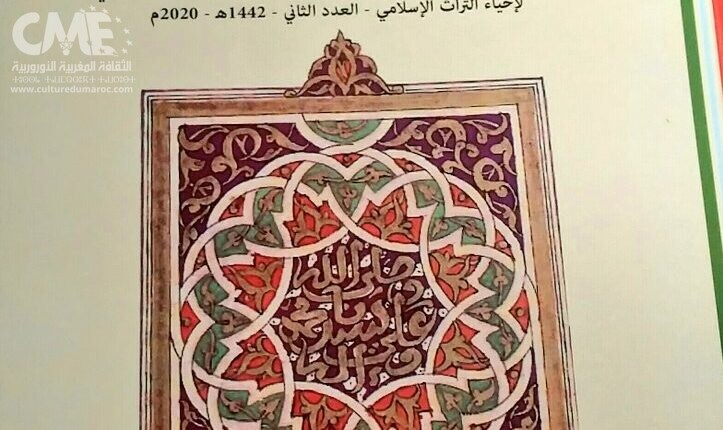 لإحياء التراث الإسلامي - العدد الثاني - 1442هـ - 2020م
CME
الثقافة المغربية النوروبية
www.culturedumaroc.com
وصلى الله
على سيدنا
محمد
وآله